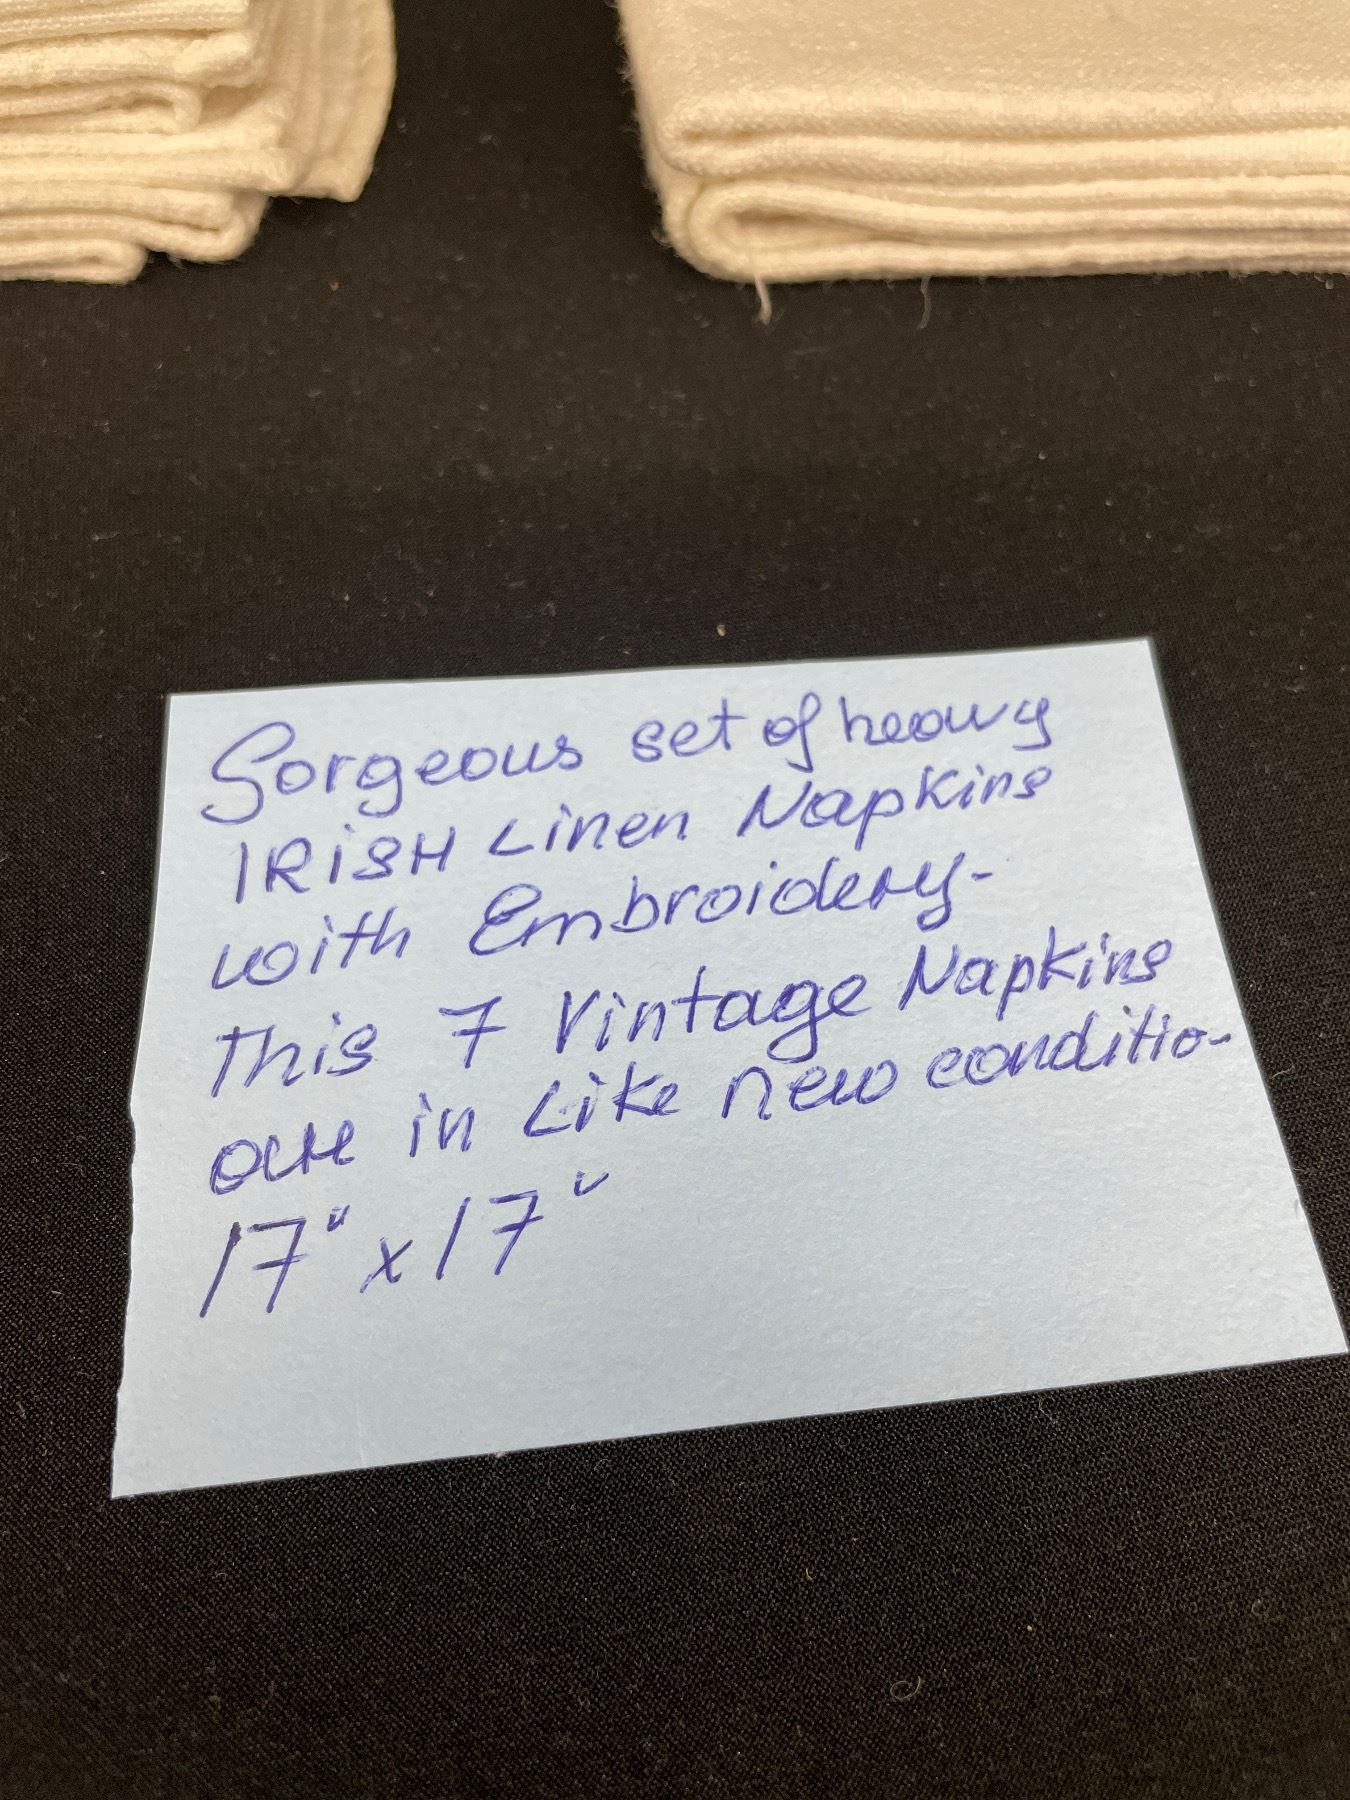 Gorgeous set of heavy
IRISH Linen Napkins
with Embroidery-
This 7 Vintage Napkins
are in Like new conditio-
17" x 17"